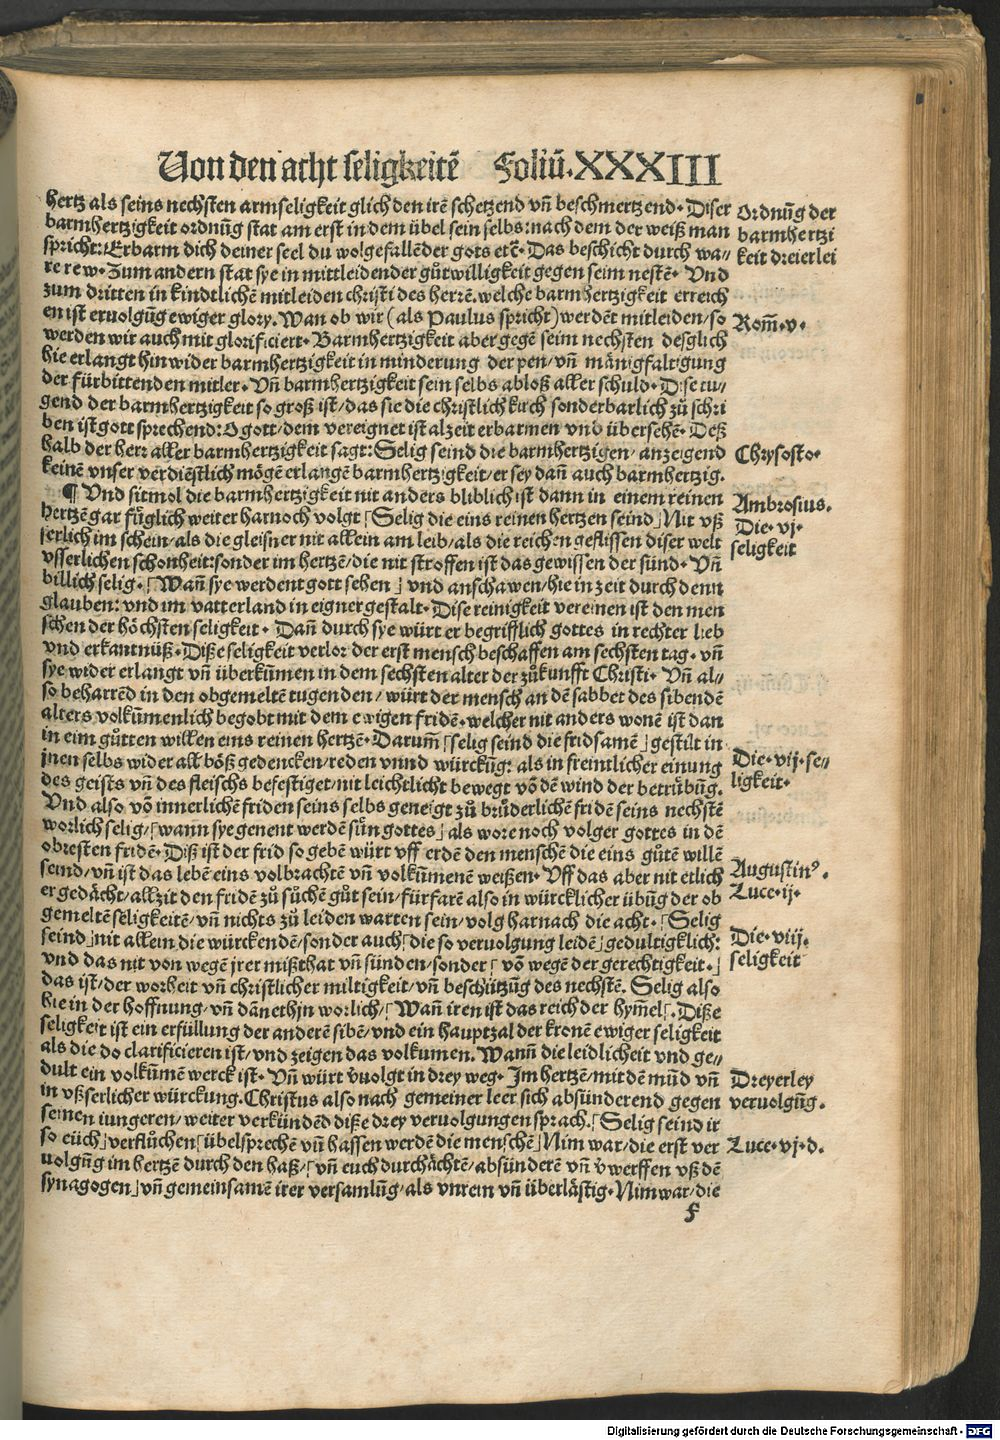 Von den acht seligkeitē Foliū.XXXIII
hertz als seins nechsten armseligkeit glich den irē schetzend vñ beschmertzend. Diser
barmhertzigkeit ordnūg stat am erst in dem übel sein selbs: nach dem der weiß man
spricht: Erbarm dich deiner seel du wolgefallēder gots etc̄. Das beschicht durch wa/
re rew. Zum andern stat sye in mittleidender gůtwilligkeit gegen seim nestē. Vnd
zum dritten in kindtlichē mitleiden christi des herrē. welche barmhertzigkeit erreich
en ist eruolgūg ewiger glory. Wan ob wir (als Paulus spricht) werdēt mitleiden/ so
werden wir auch mit glorificiert. Barmhertzigkeit aber gegē seim nechsten desglich
hie erlangt hinwider barmhertzigkeit in minderung der pen/ vñ mānigfaltigung
der fürbittenden mitler. Vñ barmhertzigkeit sein selbs abloß aller schuld. Dise tu/
gend der barmhertzigkeit so groß ist/ das sie die christlich kirch sonderbarlich zů schri
ben ist gott sprechend: O gott/ dem vereignet ist alzeit erbarmen vnd übersehē. Deß
halb der herr aller barmhertzigkeit sagt: Selig seind die barmhertzigen/ anzeigend
keinē vnser verdiēstlich mögē erlangē barmhertzigkeit/ er sey dañ auch barmhertzig.
¶ Vnd sitmol die barmhertzigkeit nit anders bliblich ist dann in einem reinen
hertzē gar fůglich weiter harnoch volgt ⌈Selig die eins reinen hertzen seind⌋ Nit vß
serlich im schein/ als die gleisner nit allein am leib/ als die reichen geflissen diser welt
vsserlichen schonheit: sonder im hertzē/ die nit stroffen ist das gewissen der sünd. Vñ
billich selig. ⌈Wañ sye werdent gott sehen⌋ vnd anschawen/ hie in zeit durch denn
glauben: vnd im vatterland in eigner gestalt. Dise reinigkeit vereinen ist den men
schen der höchsten seligkeit. Dañ durch sye würt er begrifflich gottes in rechter lieb
vnd erkantnüß. Diße seligkeit verlor der erst mensch beschaffen am sechsten tag. vñ
sye wider erlangt vñ überkūmen in dem sechsten alter der zůkunfft Christi. Vñ al/
so beharrēd in den obgemeltē tugenden/ würt der mensch an dē sabbet des sibendē
alters volkūmenlich begobt mit dem ewigen fridē. welcher nit anders wonē ist dan
in eim gůtten willen eins reinen hertzē. Darum̄ ⌈selig seind die fridsamē⌋ gestilt in
jnen selbs wider all bōß gedencken/ reden vnnd würckūg: als in freintlicher einung
des geists vñ des fleischs befestiget/ nit leichtlicht bewegt vō dē wind der betrübūg.
Vnd also vō innerlichē friden seins selbs geneigt zů brůderlichē fridē seins nechstē
worlich selig/ ⌈wann sye genent werdē sün gottes⌋ als wore noch volger gottes in dē
obresten fridē. Diß ist der frid so gebē würt vff erdē den menschē die eins gůtē willē
seind/ vñ ist das lebē eins volbrachtē vñ volkūmenē weißen. Vff das aber nit etlich
er gedächt/ allzit den fridē zů sůchē gůt sein/ fürfarē also in würcklicher übūg der ob
gemeltē seligkeitē/ vñ nichts zů leiden warten sein/ volg harnach die acht. ⌈Selig
seind⌋ nit allein die würckendē/ sonder auch ⌈die so veruolgung leidē⌋ gedultigklich:
vnd das nit von wegē jrer mißthat vñ sünden/ sonder ⌈ vō wegē der gerechtigkeit.⌋
das ist/ der worheit vñ christlicher miltigkeit/ vñ beschützūg des nechstē. Selig also
hie in der hoffnung/ vñ dānethjn worlich/ ⌈Wañ iren ist das reich der hym̄el⌋. Diße
seligkeit ist ein erfüllung der anderē sibē/ vnd ein hauptzal der kronē ewiger seligkeit
als die do clarificieren ist/ vnd zeigen das volkumen. Wann̄ die leidlicheit vnd ge/
dult ein volkūmē werck ist. Vñ würt v̄uolgt in drey weg. Im hertzē/ mit dē mūd vñ
in vßserlicher würckung. Christus also nach gemeiner leer sich absünderend gegen
seinen iungeren/ weiter verkündēd diße drey veruolgungen sprach. ⌈Selig seind ir
so eüch⌋ verflůchen ⌈übelsprechē vñ hassen werdē die menschē⌋ Nim war/ die erst ver
uolgūg im hertzē durch den haß/ ⌈vñ euch durchächtē/ absünderē vñ v̄werffen vß dē
synagogen⌋ vñ gemeinsamē irer versamlūg/ als vnrein vñ überlästig. Nim war/ die
f
Ordnūg der
barmhertzi
keit dreierlei
Rom̄.v.
Chrysosto.
Ambrosius.
Die.vj.
seligkeit
Die.vij.se/
ligkeit.
Augustinꝰ.
Luce.ij.
Die.viij.
seligkeit
Dreyerley
veruolgūg.
Luce.vj.d.
Digitalisierung gefördert durch die Deutsche Forschungsgemeinschaft - DFG